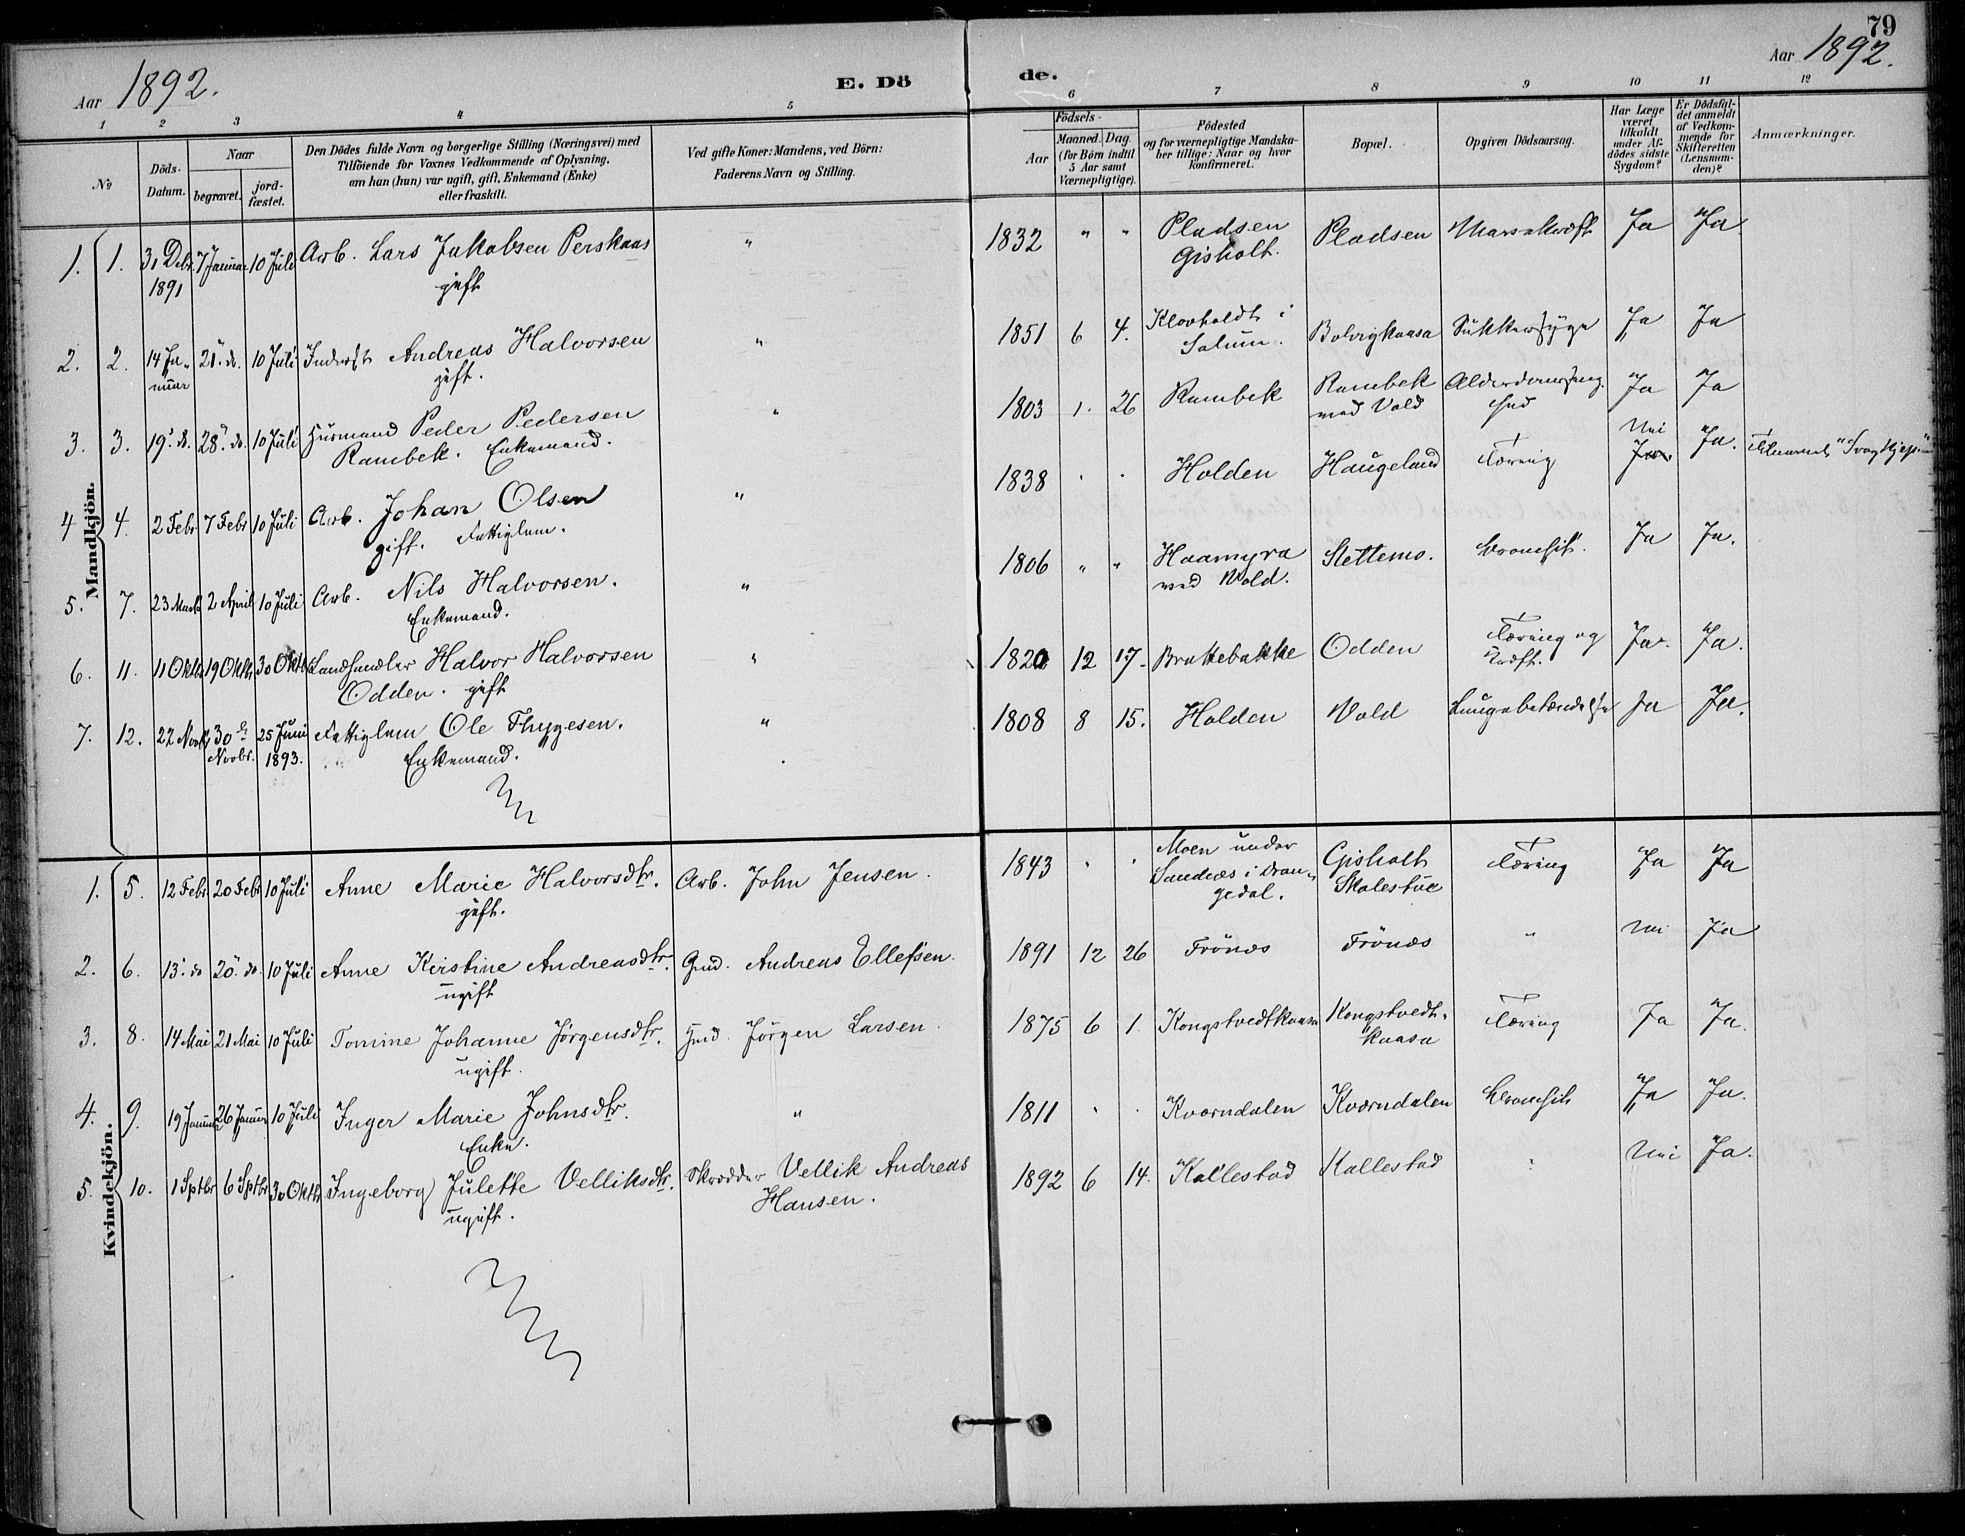 79
Aar 1892.
E. Dö
de.
Aar 1892.
1 2 3 4 5 6 7 8 9 10 11 12
№
Döds-
Datum.
Naar
begravet.
jord-
fæstet.
Den Dödes fulde Navn og borgerlige Stilling (Næringsvei) med
Tilföiende for Voxnes Vedkommende af Oplysning,
om han (hun) var ugift, gift, Enkemand (Enke)
eller fraskilt.
Ved gifte Koner: Mandens, ved Börn:
Faderens Navn og Stilling.
Födsels-
Aar
Maaned. Dag
(for Börn indtil
5 Aar samt
Værnepligtige).
Födested
og for værnepligtige Mandska-
ber tillige: Naar og hvor
konfirmeret.
Bopæl.
Opgiven Dödsaarsag.
Har Læge
været
tilkaldt
under Af-
dödes sidste
Sygdom?
Er Dödsfal-
det anmeldt
af Vedkom-
mende for
Skifteretten
(Lensman-
den)?
Anmærkninger.
Mandkjön.
1. 1. 31 Debr 7 Januar 10 Juli Arb. Lars Jakobsen Perskaas " 1832 " " Pladsen Pladsen Mavekræft Ja Ja.
1891 gift Gisholt.
2. 2. 14 Ja- 21' do. 10 Juli Inderst Andreas Halvorsen " 1851 6 4. Klovholdt i Bolvigkaasa Sukkersyge Ja Ja
nuar gift. Solum.
3. 3. 19' do. 28' do. 10 Juli Husmand Peder Pedersen " 1803 1. 26 Rambek Rambek Alderdomssvag- Ja Ja
Rambek. Enkemand. med Vold hed
4 4. 2 Febr 7 Febr 10 Juli Arb. Johan Olsen " 1838 " " Holden Haugeland Tæring Nei Ja Ja.
gift. Fattiglem.
5. 7. 23 Marts 2 April 10 Juli Arb. Nils Halvorsen. " 1806 " " Haamyra Slettemo. Bronchit. Ja Ja.
Enkemand. ved Vold.
6. 11. 11 Oktbr 19 Oktbr 30 Oktbr Landhandler Halvor Halvorsen " 1820 12 17. Brukebakke Odden Tæring og Ja. Ja.
Odden. gift
7. 12. 22 Novbr 30 25 Juni Fattiglem Ole Thygesen. " 1808 8 15. Holden Vold Lungebetændelse Ja Ja.
Novbr. 1893. Enkemand.
Kvindekjön.
1. 5. 12 Febr 20 Febr 10 Juli Anne Marie Halvorsdtr. Arb. John Jensen. 1843 " " Moen under Gisholt Tæring Ja Ja
gift. Sandnæs i Dran- Skolestue
gedal.
2. 6. 13' do 20' do. 10 Juli Anne Kirstine Andreasdtr. Gmd. Andreas Ellefsen. 1891 12 26 Frönæs Frönæs " Nei Ja
ugift
3. 8. 14 Mai 21 Mai 10 Juli Tomine Johanne Jørgensdtr. Hmd. Jørgen Larsen. 1875 6 1. Kongstvedtkaasa Kongstvedt- Tæring Ja Ja.
ugift. kaasa
4. 9. 19 Januar 26 Januar 10 Juli Inger Marie Johnsdtr. " 1811 " " Kværndalen Kværndalen Bronchit Ja Ja.
Enke.
5. 10. 1 Sptbr 6 Sptbr 30 Oktbr Ingeborg Julette Velliksdtr. Skrædder Vellik Andreas 1892 6 14. Kallestad Kallestad " Nei Ja.
ugift. Hansen.